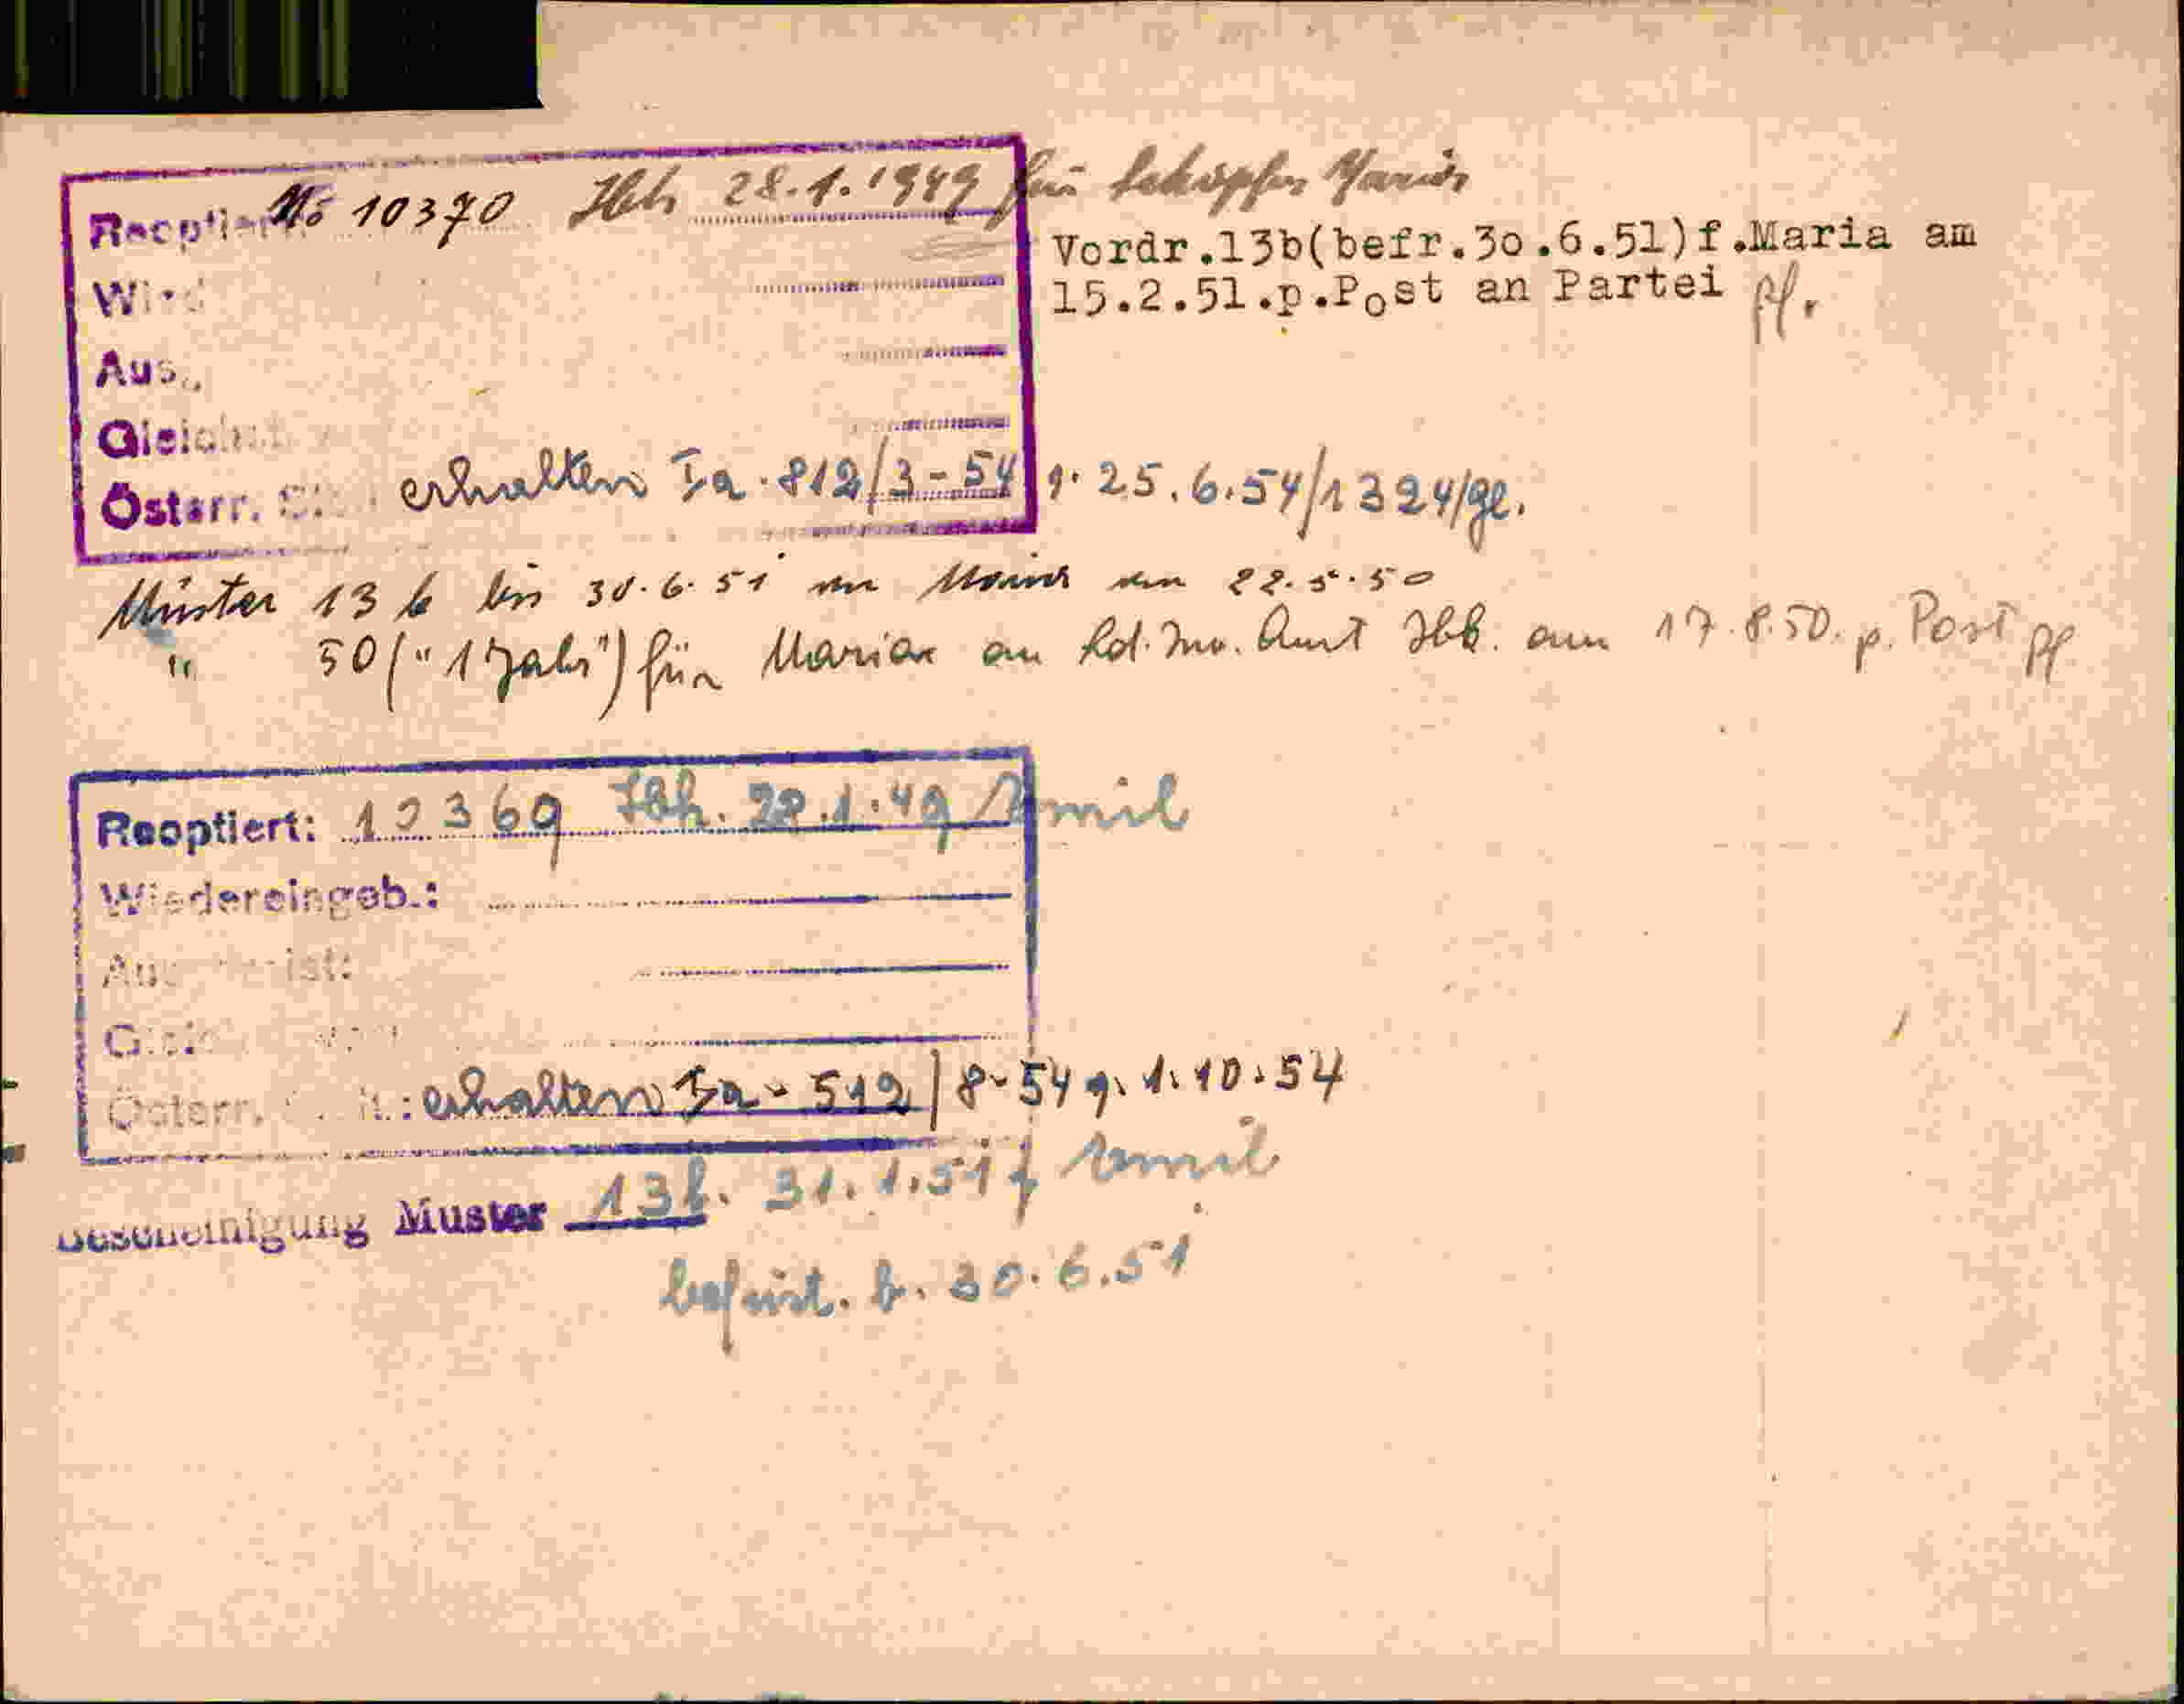 Reoptiert: No 10370 Ibk 28.1.1949 für Schöpfer Maria
Vordr.13b(befr.30.6.51)f.Maria am
15.2.51.p.Post an Partei pf.
Wied
Aus
Gleich
Österr. St. erhalten Ia-812/3-54 v. 25.6.54/1324/ge.
Muster 13 b bis 30.6.51 an Maria am 22.5.50
" 50 ("1 Jahr") für Maria an Ld. Inv. Amt Ibk. am 17.8.50. p. Post pf
Reoptiert: 10369 Ibk. 28.1.49 Emil
Wiedereingeb.:
Gleich
Österr. erhalten Ia-512/8-54 v. 1.10.54
Bescheinigung Muster 13b. 31.1.51 f Emil
befrist. b. 30.6.51